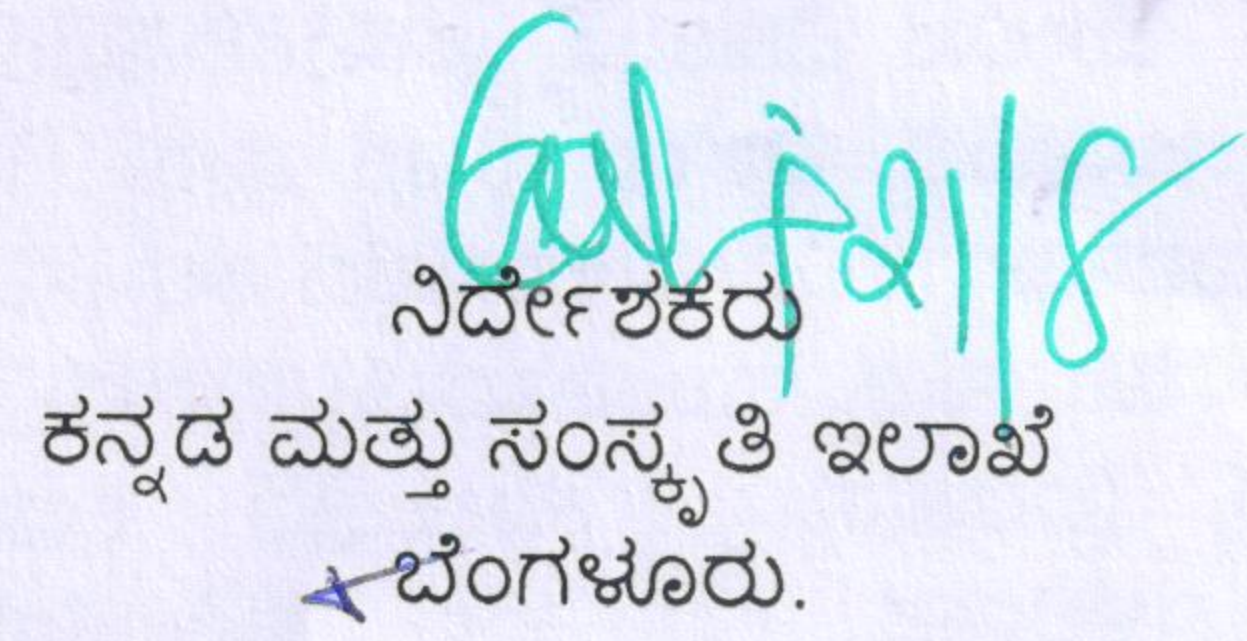 21/8
ನಿರ್ದೇಶಕರು
ಕನ್ನಡ ಮತ್ತು ಸಂಸ್ಕೃತಿ ಇಲಾಖೆ
ಬೆಂಗಳೂರು.